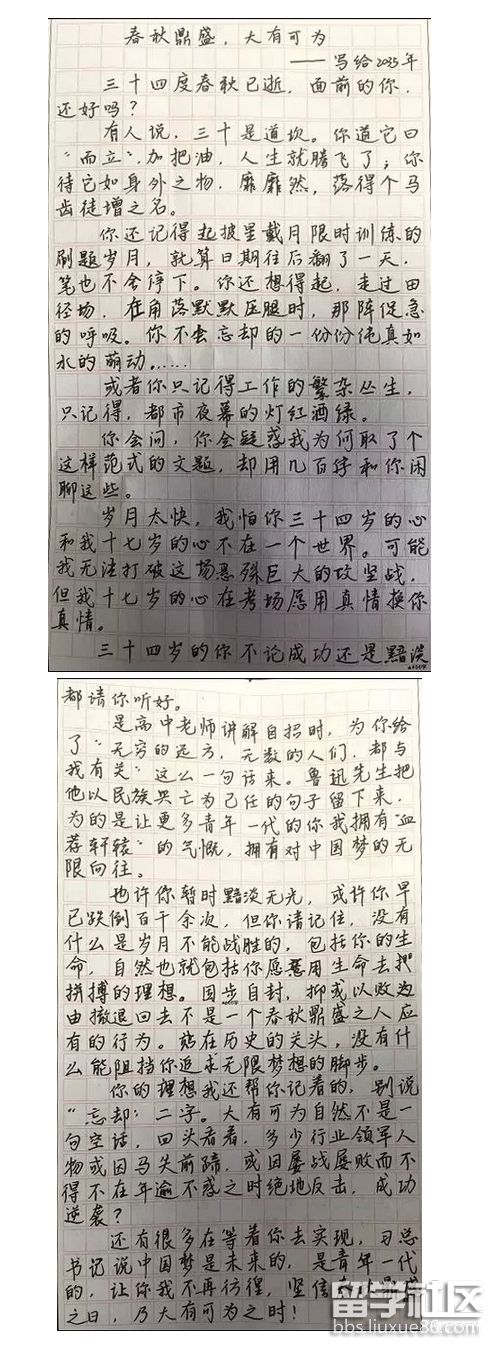 春秋鼎盛，大有可为
——写给2035年
三十四度春秋已逝，面前的你，
还好吗？
有人说，三十是道坎。你道它曰
“而立”，加把油，人生就腾飞了；你
待它如身外之物，靡靡然，落得个马
齿徒增之名。
你还记得起披星戴月限时训练的
刷题岁月，就算日期往后翻了一天，
笔也不会停下。你还想得起，走过田
径场，在角落默默压腿时，那阵促急
的呼吸。你不会忘却的一份份纯真如
水的萌动……
或者你只记得工作的繁杂丛生，
只记得，都市夜幕的灯红酒绿。
你会问，你会疑惑我为何取了个
这样范式的文题，却用几百字和你闲
聊这些。
岁月太快，我怕你三十四岁的心
和我十七岁的心不在一个世界。可能
我无法打破这场悬殊巨大的攻坚战，
但我十七岁的心在考场愿用真情换你
真情。
三十四岁的你不论成功还是黯淡
都请你听好。
是高中老师讲解自招时，为你给
了“无穷的远方，无数的人们，都与
我有关”这么一句话来。鲁迅先生把
他以民族兴亡为己任的句子留下来，
为的是让更多青年一代的你我拥有“血
荐轩辕”的气慨，拥有对中国梦的无
限向往。
也许你暂时黯淡无光，或许你早
已跌倒百千余次，但你请记住，没有
什么是岁月不能战胜的，包括你的生
命，自然也就包括你愿意用生命去
拼搏的理想。固步自封，抑或以败为
由撤退回去不是一个春秋鼎盛之人应
有的行为。站在历史的关头，没有什
么能阻挡你追求无限梦想的脚步。
你的理想我还帮你记着的，别说
“忘却”二字。大有可为自然不是一
句空话，回头看看，多少行业领军人
物或因马失前蹄，或因屡战屡败而不
得不在年逾不惑之时绝地反击，成功
逆袭？
还有很多在等着你去实现，习总
书记说中国梦是未来的，是青年一代
的，让你我不再彷徨，坚信春秋鼎盛
之日，乃大有可为之时！
留学社区
bbs.liuxue86.com